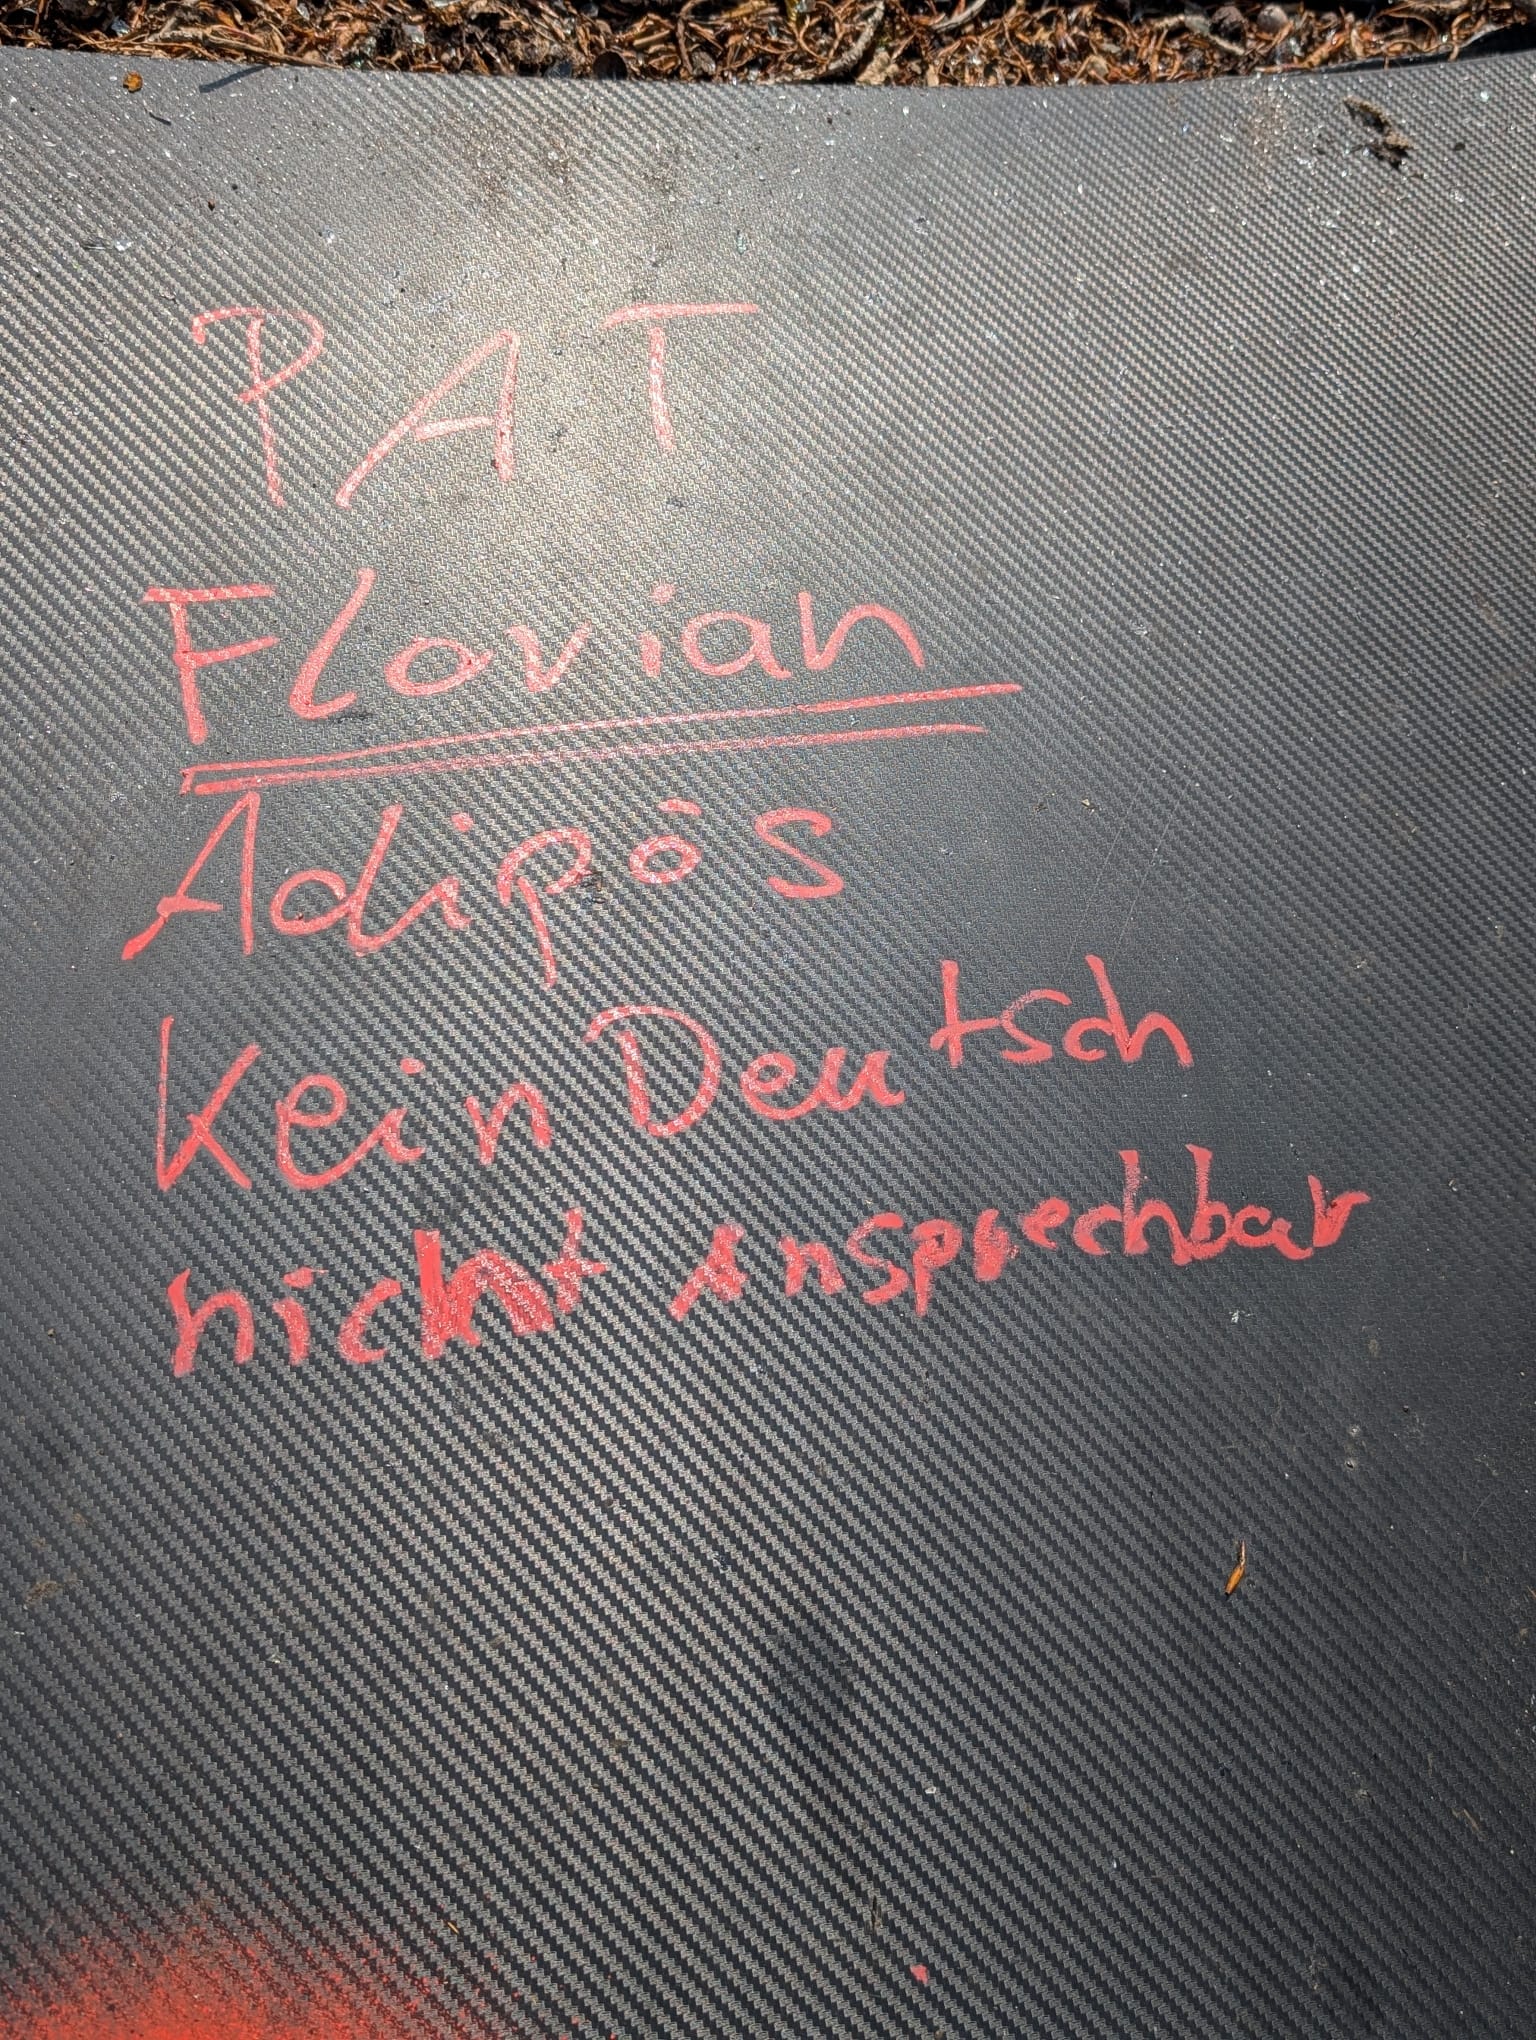 PAT
Florian
Adipös
Kein Deutsch
nicht Ansprechbar